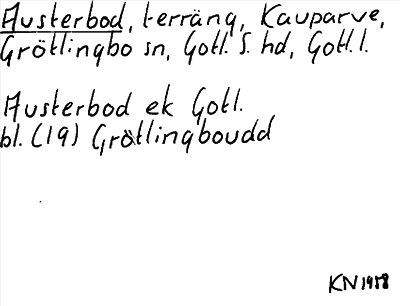 Austerbod, terräng, Kauparve,
Grötlingbo sn, Gotl. S. hd, Gotl. l.
Austerbod ek Gotl.
bl. (19) Grötlingboudd
KN 1958